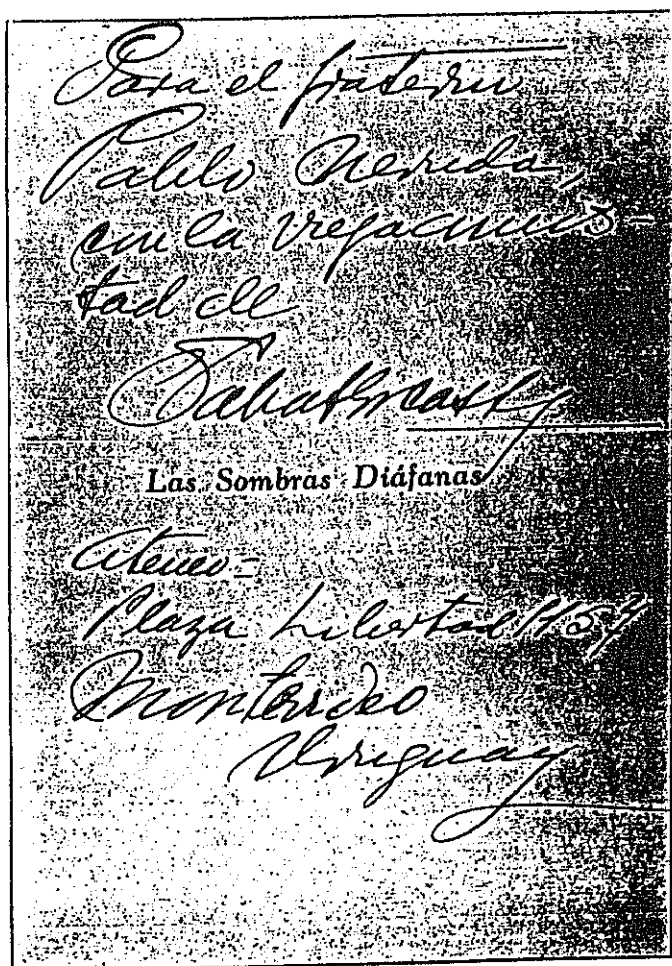 Para el fraterno
Pablo Neruda,
con la vieja amis-
tad de
Sabat Ercasty
Las Sombras Diáfanas
Ateneo=
Plaza Libertad 1157
Montevideo
Uruguay